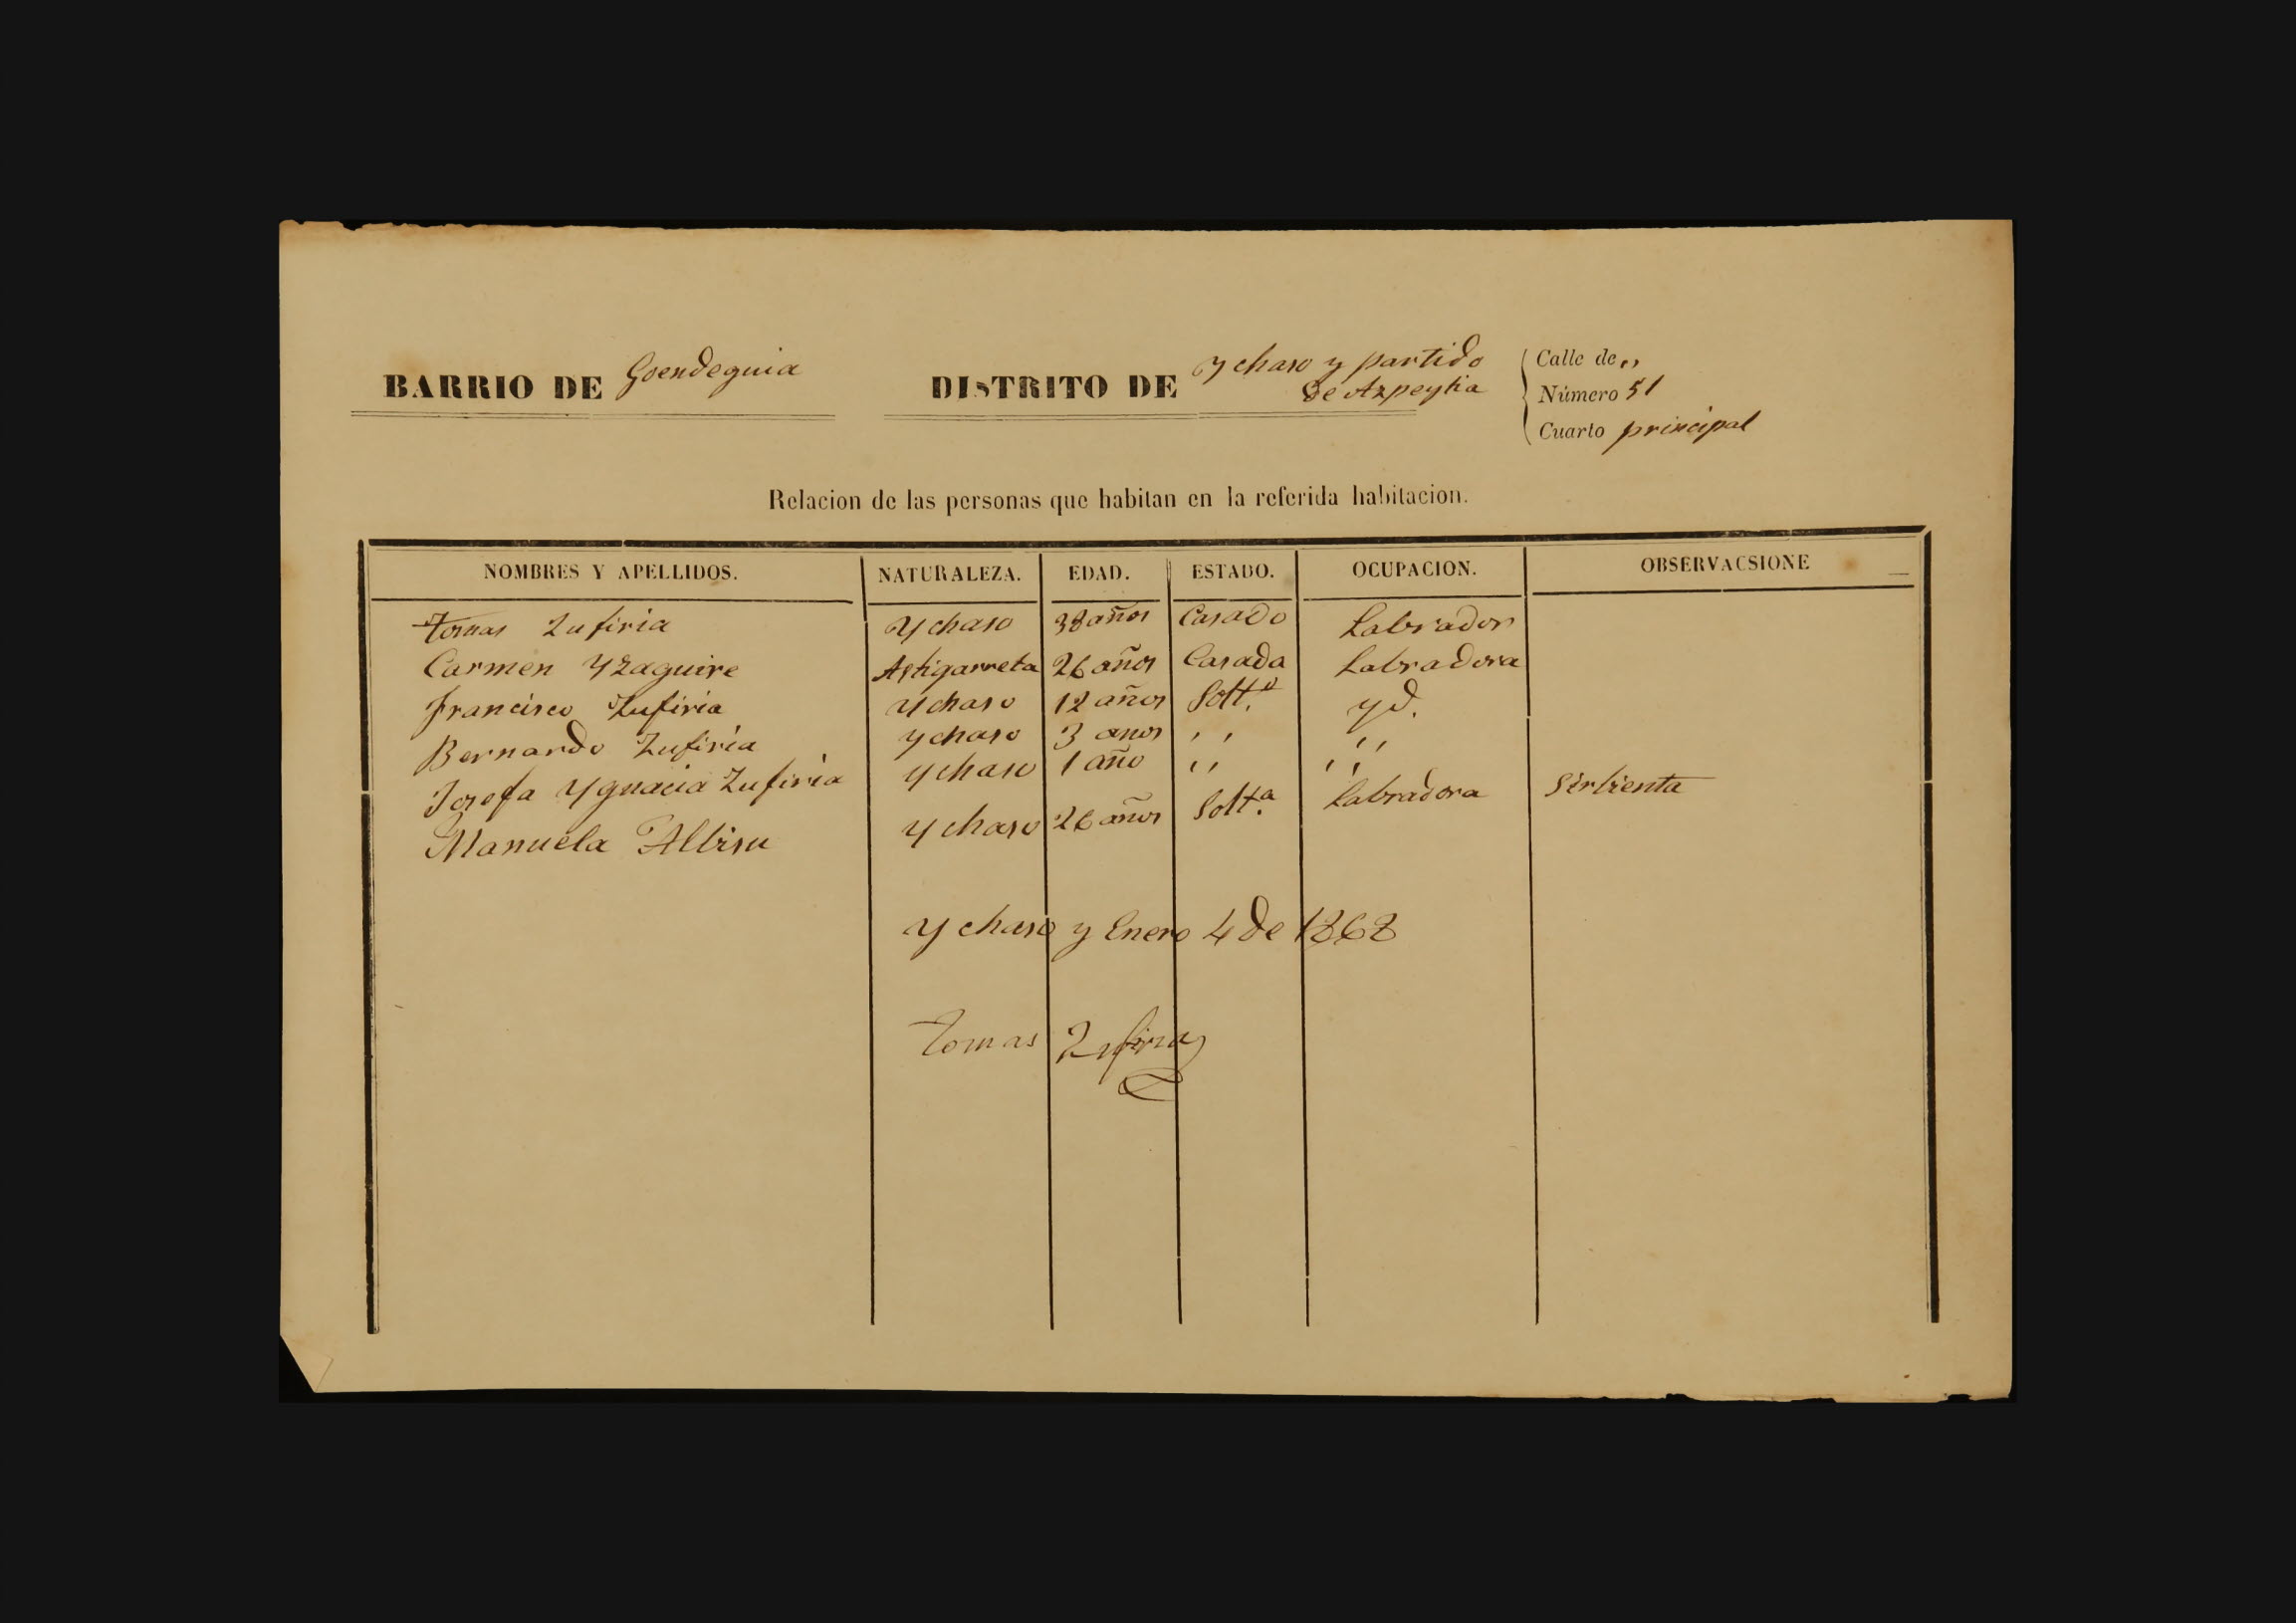 BARRIO DE Goendeguia DISTRITO DE Ychaso y partido de Azpeytia
Calle de ,,
Número 51
Cuarto principal
Relacion de las personas que habitan en la referida habitacion.
NOMBRES Y APELLIDOS. NATURALEZA. EDAD. ESTADO. OCUPACION. OBSERVACSIONE
Tomas Zufiria Ychaso 38 años Casado Labrador
Carmen Yzaguire Astigarreta 26 años Casada Labradora
Francisco Zufiria Ychaso 12 años Solt.o yd.
Bernardo Zufiria Ychaso 3 años ,, ,,
Josefa Ygnacia Zufiria Ychaso 1 año ,, ,,
Manuela Albisu Ychaso 26 años Solt.a Labradora Sirbienta
Ychaso y Enero 4 de 1868
Tomas Zufiria